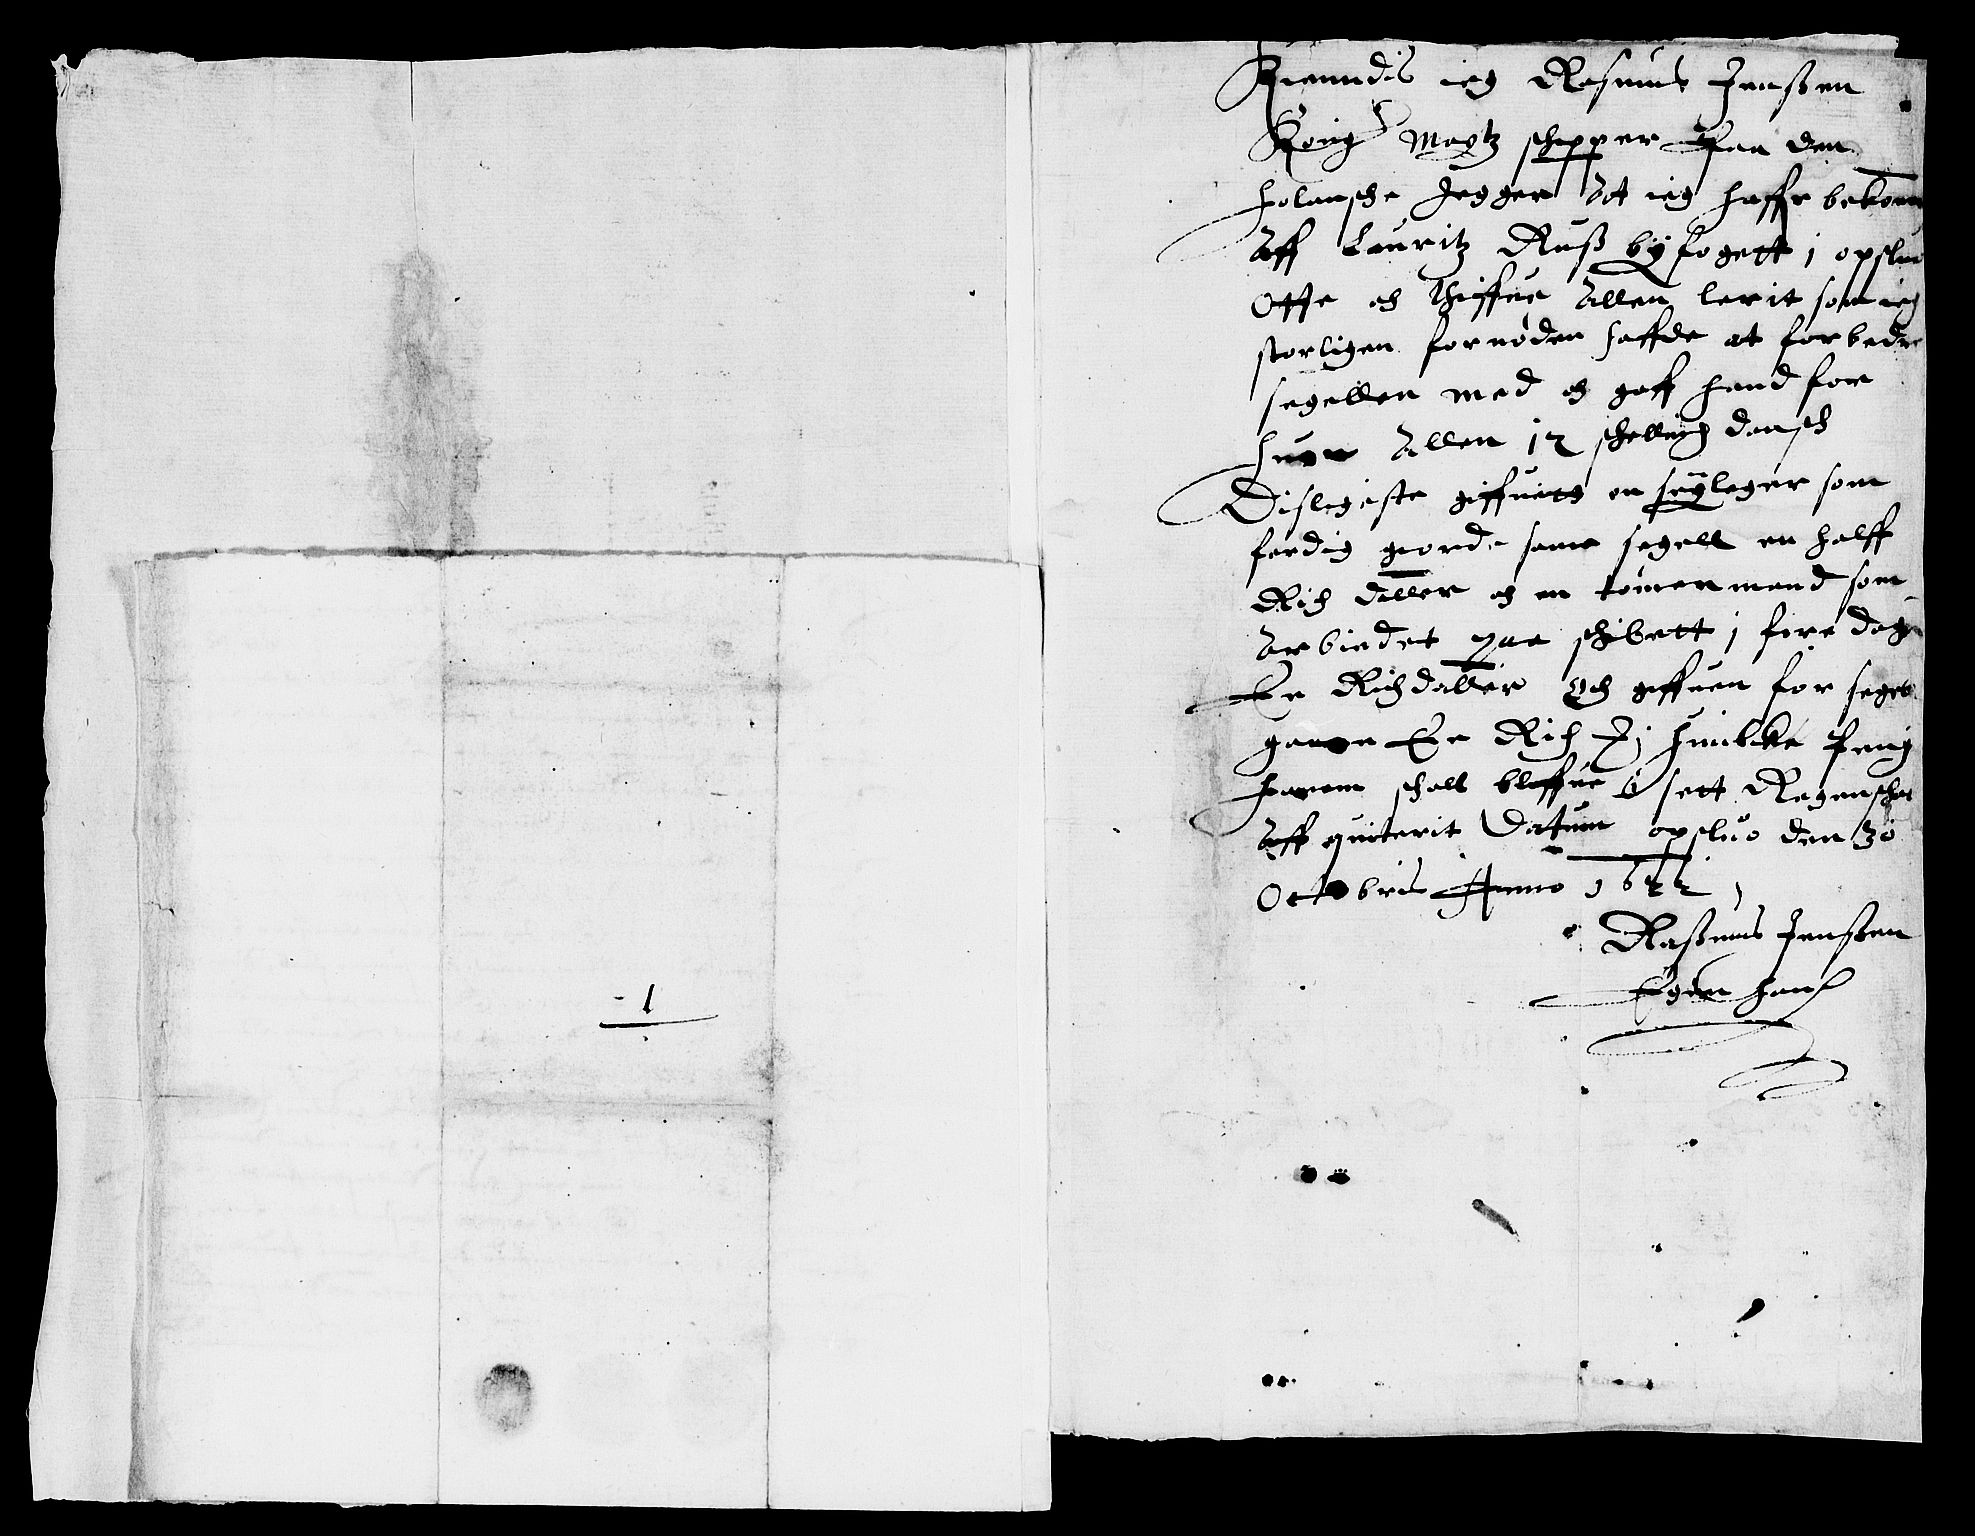 Kienndis ieg Rasmus Jenssen
Kong Maytz schipper Paa den
holansche Jegger At ieg haffr bekom
Aff Lauritz Russ byfogett i opsluo
Otte och thiffue Allen lerit som ieg
storligen fornøden haffde at forbedre
segellen med och gaff hand for
huer Allen 12 schelling dansch
Disligeste giffuett en seyleger som
ferdig giorde same segell en halff
Rich daller och en tømermand som
Arbiedet paa schibett i fire dage
En Richdaller Och giffuen for segel
garn En Rich Huilcke Peng
hannem schall bleffue sett Regenschab
Aff quiterit Datum opsluo den 30
Octobris Anno 1622
Rassmus Jenssen
Egen hand
1